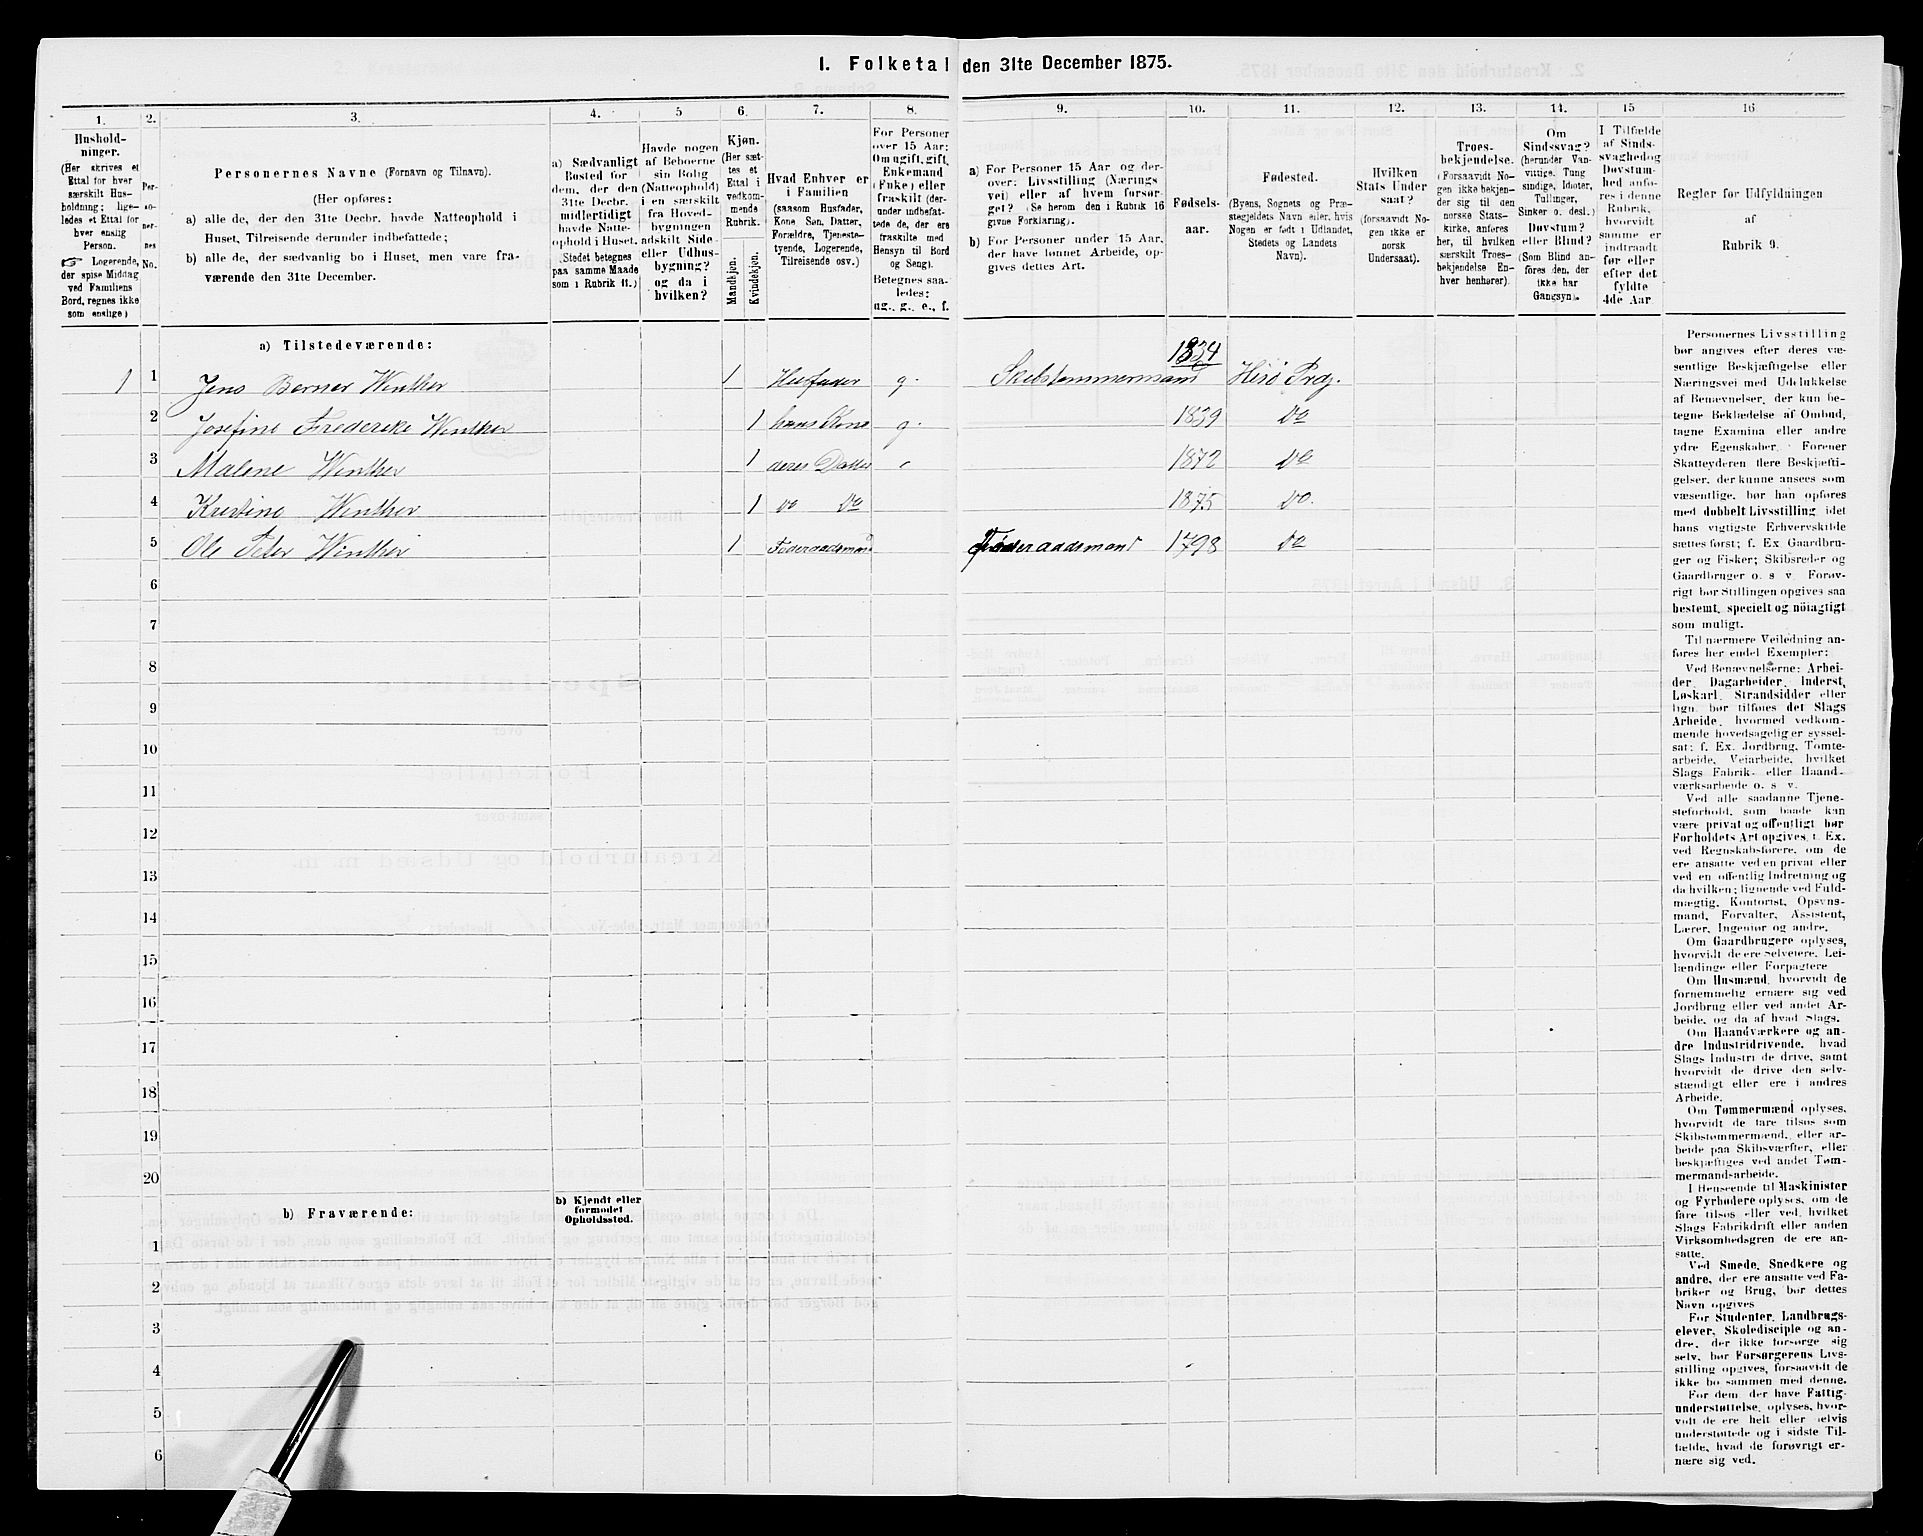 1. Folketal den 31te December 1875.
1.
Hushold-
ninger.
(Her skrives et
Ettal for hver
særskilt Hus-
holdning; lige-
ledes et Ettal for
hver enslig
Person.
☞ Logerende,
der spise Middag
ved Familiens
Bord, regnes ikke
som enslige)
2.
Per-
so-
ner-
nes
No.
3.
Personernes Navne (Fornavn og Tilnavn).
(Her opføres:
a) alle de, der den 31te Decbr. havde Natteophold i
Huset, Tilreisende derunder indbefattede;
b) alle de, der sædvanlig bo i Huset, men vare fra-
værende den 31te December.
4.
a) Sædvanligt
Bosted for
dem, der den
31te Decbr.
midlertidigt
havde Natte-
ophold i Huset.
(Stedet betegnes
paa samme Maade
som i Rubrik 11.)
5
Havde nogen
af Beboerne
sin Bolig
(Natteophold)
i en særskilt
fra Hoved-
bygningen
adskilt Side-
eller Udhus-
bygning?
og da i
hvilken?
6.
Kjøn.
(Her sæt-
tes et
Ettal i
vedkom-
mende
Rubrik.
Mandkjøn.
Kvindekjøn.
7.
Hvad Enhver er
i Familien
(saasom Husfader,
Kone, Søn, Datter,
Forældre, Tjeneste-
tyende, Logerende,
Tilreisende osv.)
8.
For Personer
over 15 Aar:
Om ugift, gift,
Enkemand
(Enke) eller
fraskilt (der-
under indbefat-
tede de, der ere
fraskilte med
Hensyn til Bord
og Seng).
Betegnes saa-
ledes:
ug., g., e., f.
9.
a) For Personer 15 Aar og der-
over: Livsstilling (Nærings-
vei) eller af hvem forsør-
get? (Se herom den i Rubrik 16
givne Forklaring).
b) For Personer under 15 Aar,
der have lønnet Arbeide, op-
gives dettes Art.
10.
Fødsels-
aar.
11.
Fødested.
(Byens, Sognets og Præ-
stegjeldets Navn eller, hvis
Nogen er født i Udlandet,
Stedets og Landets
Navn).
12.
Hvilken
Stats Under-
saat?
(forsaavidt No-
gen ikke er
norsk
Undersaat).
13.
Troes-
bekjendelse.
(Forsaavidt No-
gen ikke bekjen-
der sig til den
norske Stats-
kirke, anføres
her, til hvilken
særskilt Troes-
bekjendelse En-
hver henhører).
14.
Om
Sindssvag?
(herunder Van-
vittige, Idioter,
Tullinger,
Sinker o. desl.)
Døvstum?
eller Blind?
(Som Blind an-
føres den, der
ikke har
Gangsyn).
15
I Tilfælde
af Sinds-
svaghed og
Døvstum-
hed anfø-
res i denne
Rubrik,
hvorvidt
samme er
indtraadt
før eller
efter det
fyldte
4de Aar
16
Regler for Udfyldningen
af
Rubrik 9.
a) Tilstedeværende:
1 1 Jens Berner Winther 1 Husfader g. Skibstømmermand 1834 Hisö Prdg.
2 Josefine Frederike Winther 1 hans Kone g. 1839 do
3 Malene Winther 1 deres Datter 1872 do
4 Kristine Winther 1 do do 1875 do.
5 Ole Peter Winther 1 Føderaadsmand Føderaadsmand 1798 do
6
7
8
9
10
11
12
13
14
15
16
17
18
19
20
b) Fraværende:
b) Kjendt eller
formodet
Opholdssted.
1
2
3
4
5
6
Personernes Livsstilling
bør angives efter deres væ-
sentlige Beskjæftigelse eller
Næringsvei med Udelukkelse
af Benævnelser, der kun be-
tegne Beklædelse af Ombud,
tagne Examina eller andre
ydre Egenskaber. Forener
Skatteyderen flere Beskjæfti-
gelser, der kunne ansees som
væsentlige, bør han opføres
med dobbelt Livsstilling, idet
hans vigtigste Erhvervskilde
sættes først; f. Ex Gaardbru-
ger og Fisker; Skibsreder og
Gaardbruger o. s v. Forøv-
rigt bør Stillingen opgives saa
bestemt, specielt og nöiagtigt
som muligt.
Til nærmere Veiledning an-
føres her endel Exempler:
Ved Benævnelserne: Arbei-
der, Dagarbeider, Inderst,
Løskarl, Strandsidder eller
lign. bør tilføies det Slags
Arbeide, hvormed vedkom-
mende hovedsagelig er syssel-
sat; f. Ex. Jordbrug, Tomte-
arbeide, Veiarbeide, hvilket
Slags Fabrik- eller Haand-
værksarbeide o. s v.
Ved alle saadanne Tjene-
steforhold, som baade kan
være privat og offentligt bør
Forholdets Art opgives, f. Ex.
ved Regnskabsførere, om de
ere ansatte ved en privat eller
ved en offentlig Indretning og
da hvilken; lignende ved Fuld-
mægtig, Kontorist, Opsyns-
mand, Forvalter, Assistent,
Lærer, Ingeniør og andre.
Om Gaardbrugere oplyses,
hvorvidt de ere Selveiere, Lei-
lændinge eller Forpagtere
Om Husmænd, hvorvidt de
fornemmelig ernære sig ved
Jordbrug eller ved andet Ar-
beide, og da af hvad Slags.
Om Haandværkere og an-
dre Industridrivende, hvad
Slags Industri de drive, samt
hvorvidt de drive den selv-
stændigt eller ere i andres
Arbeide.
Om Tømmermænd oplyses,
hvorvidt de fare tilsøs som
Skibstømmermænd, eller ar-
beide paa Skibsværfter, eller
beskjæftiges ved andet Tøm-
mermandsarbeide.
I Henseende til Maskinister
og Fyrbødere oplyses, om de
fare tilsøs eller ved hvilket
Slags Fabrikdrift eller anden
Virksomhedsgren de ere an-
satte.
Ved Smede, Snedkere og
andre, der ere ansatte ved Fa-
briker og Brug, bør dettes
Navn opgives
For Studenter, Landbrugs-
elever, Skoledisciple og an-
dre, der ikke forsørge sig
selv, bør Forsørgerens Livs-
stilling opgives, forsaavidt de
ikke bo sammen med denne.
For dem, der have Fattig-
understøttelse, oplyses, hvor-
vidt de ere helt eller delvis
understøttede og i sidste Til-
fælde, hvad de forøvrigt er-
nære sig ved.